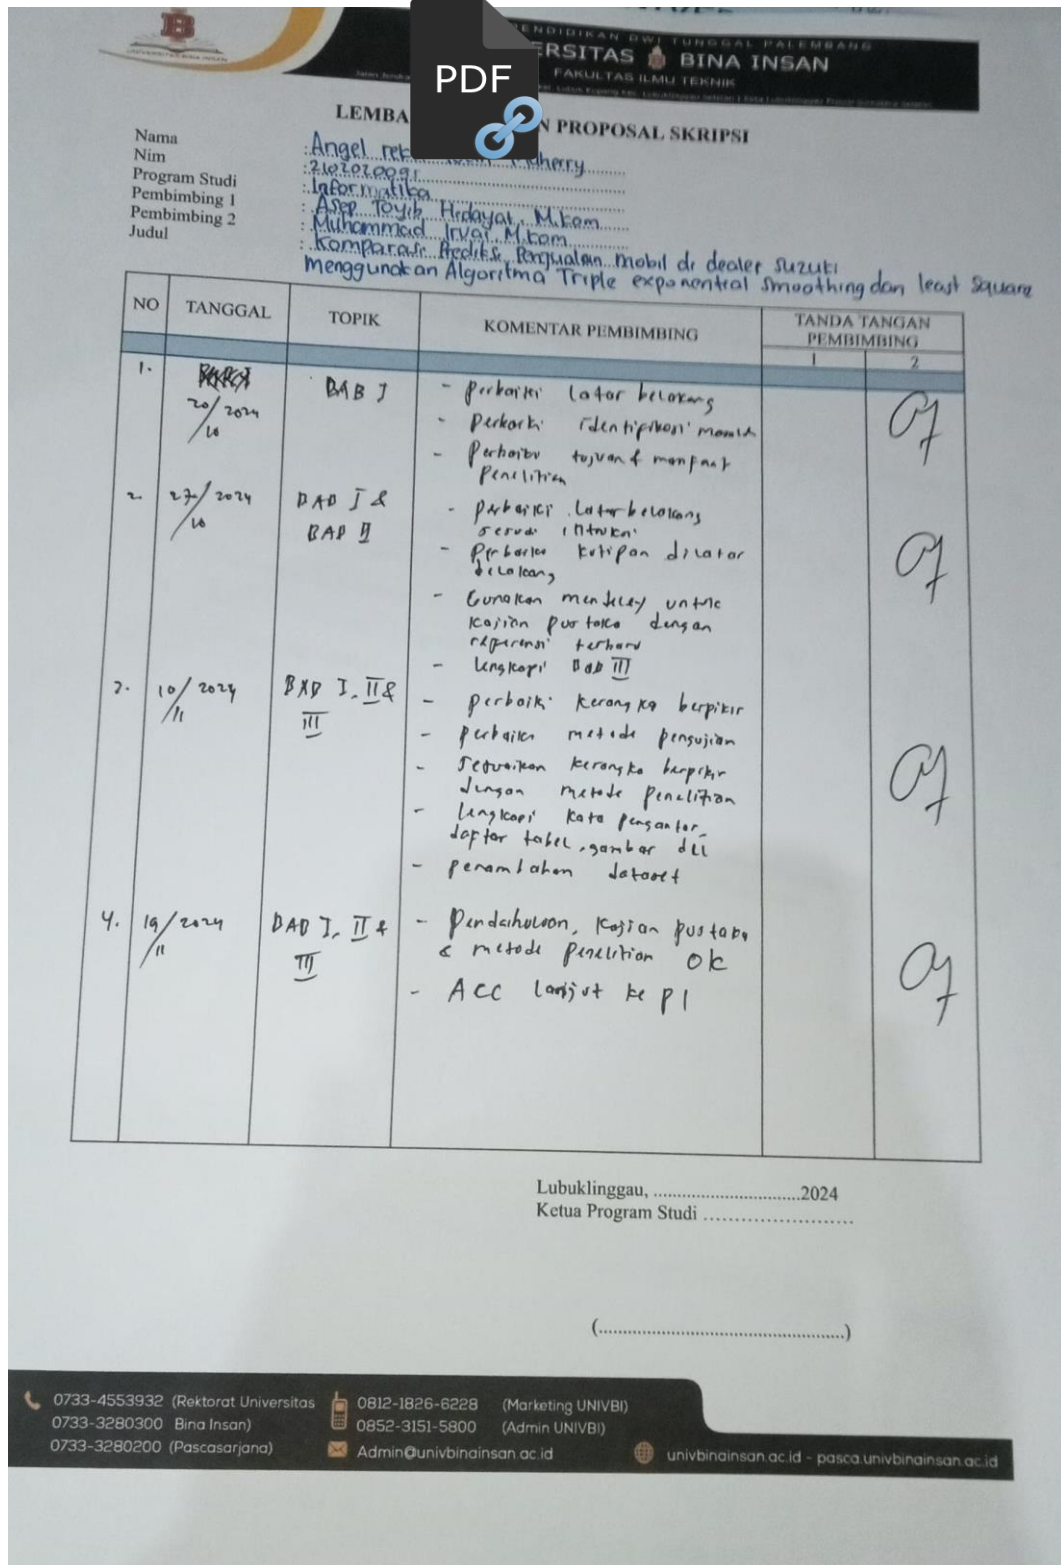 PENDIDIKAN DWI TUNGGAL PALEMBANG
ERSITAS BINA INSAN
FAKULTAS ILMU TEKNIK
PDF
LEMBA N PROPOSAL SKRIPSI
Nama : Angel
Nim : 2102020091
Program Studi : Informatika
Pembimbing 1 : Asep Toyib Hidayat, M.kom
Pembimbing 2 : Muhammad Irvai, M.kom
Judul : Komparasi Prediksi Penjualan mobil di dealer suzuki
menggunakan Algoritma Triple exponential smoothing dan least Square
NO TANGGAL TOPIK KOMENTAR PEMBIMBING TANDA TANGAN PEMBIMBING
1 2
1. 20/10 2024 BAB I - perbaiki latar belakang
- perbaiki identifikasi masalah
- perbaiki tujuan & manfaat
penelitian
2. 27/10 2024 BAB I & BAB II - perbaiki latar belakang
sesuai
- perbaiki kutipan dilatar
belakang
- Gunakan mendeley untuk
kajian pustaka dengan
referensi terbaru
- lengkapi Bab III
3. 10/11 2024 BAB I, II & III - perbaiki kerangka berpikir
- perbaiki metode pengujian
- sesuaikan kerangka berpikir
dengan metode penelitian
- lengkapi kata pengantar,
daftar tabel, gambar dll
- penambahan dataset
4. 19/11 2024 BAB I, II & III - Pendahuluan, kajian pustaka
& metode penelition ok
- ACC lanjut ke P1
Lubuklinggau, ...............................2024
Ketua Program Studi ..........................
(....................................................)
0733-4553932 (Rektorat Universitas
0733-3280300 Bina Insan)
0733-3280200 (Pascasarjana)
0812-1826-6228 (Marketing UNIVBI)
0852-3151-5800 (Admin UNIVBI)
Admin@univbinainsan.ac.id
univbinainsan.ac.id - pasca.univbinainsan.ac.id